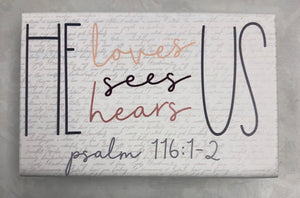 HE loves US
sees
hears
psalm 116:1-2